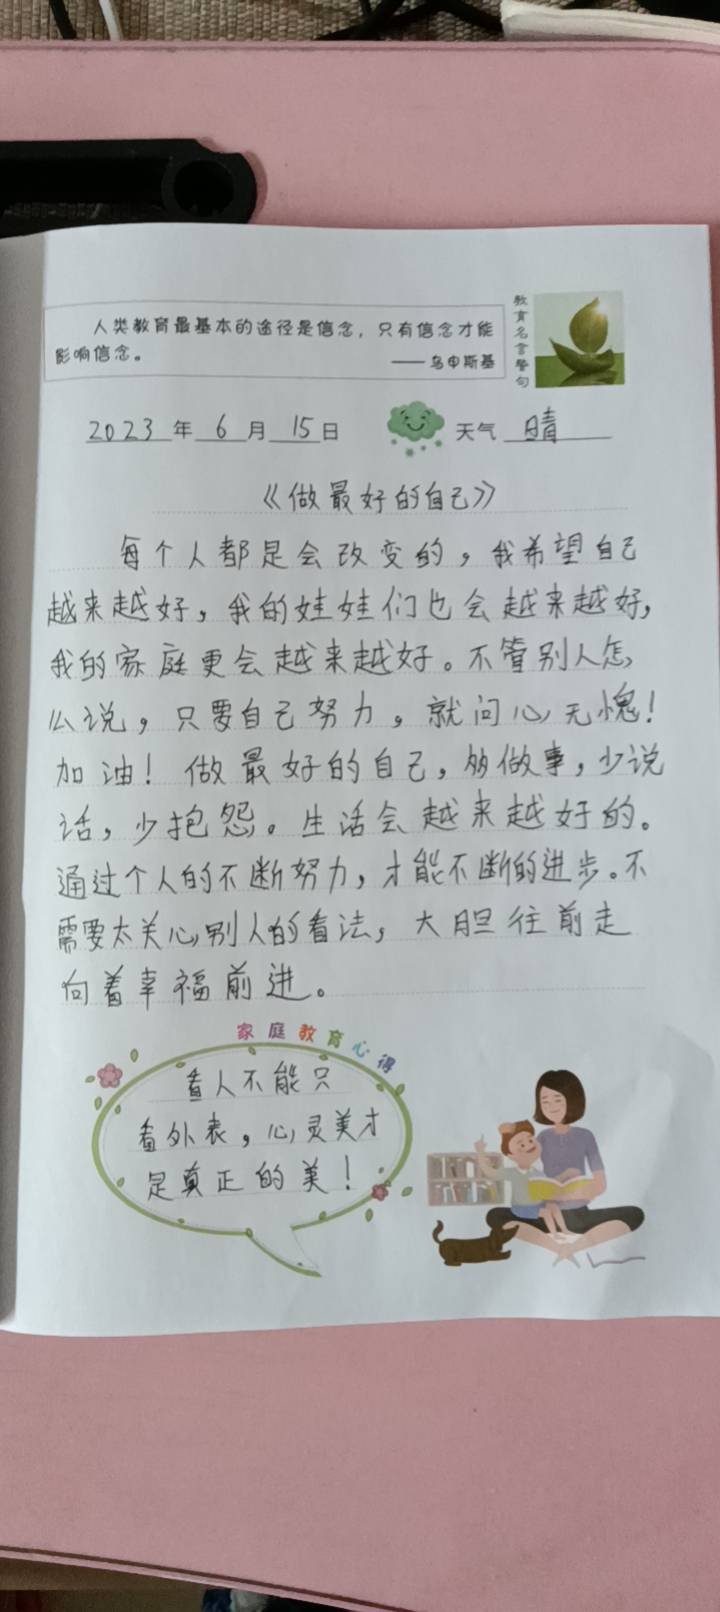 人类教育最基本的途径是信念，只有信念才能
影响信念。
——乌申斯基
教育名言警句
2023年6月15日
天气 晴
《做最好的自己》
每个人都是会改变的，我希望自己
越来越好，我的娃娃们也会越来越好，
我的家庭更会越来越好。不管别人怎
么说，只要自己努力，就问心无愧！
加油！做最好的自己，多做事，少说
话，少抱怨。生活会越来越好的。
通过个人的不断努力，才能不断的进步。不
需要太关心别人的看法，大胆往前走
向着幸福前进。
家庭教育心得
看人不能只
看外表，心灵美才
是真正的美！